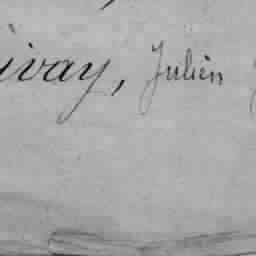 ivay, Julien